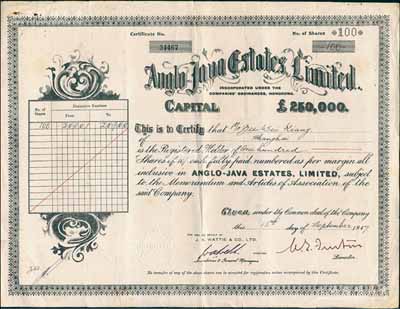 Certificate No. No. of Shares *100*
34467 100
Anglo-Java Estates, Limited.
INCORPORATED UNDER THE
COMPANIES' ORDINANCES, HONGKONG.
CAPITAL £250,000.
No. of Shares Distinctive Numbers
From To
100
This is to Certify that Kiang
of Shanghai
is the Registered Holder of One hundred
Shares of each fully paid numbered as per margin all
inclusive in ANGLO-JAVA ESTATES, LIMITED, subject
to the Memorandum and Articles of Association of the
said Company.
Given under the Common Seal of the Company
this day of September 19
J. A. WATTIE & CO., LTD.
Secretaries & General Managers
Director
No transfer of any of the above shares can be accepted for registration unless accompanied by this Certificate.